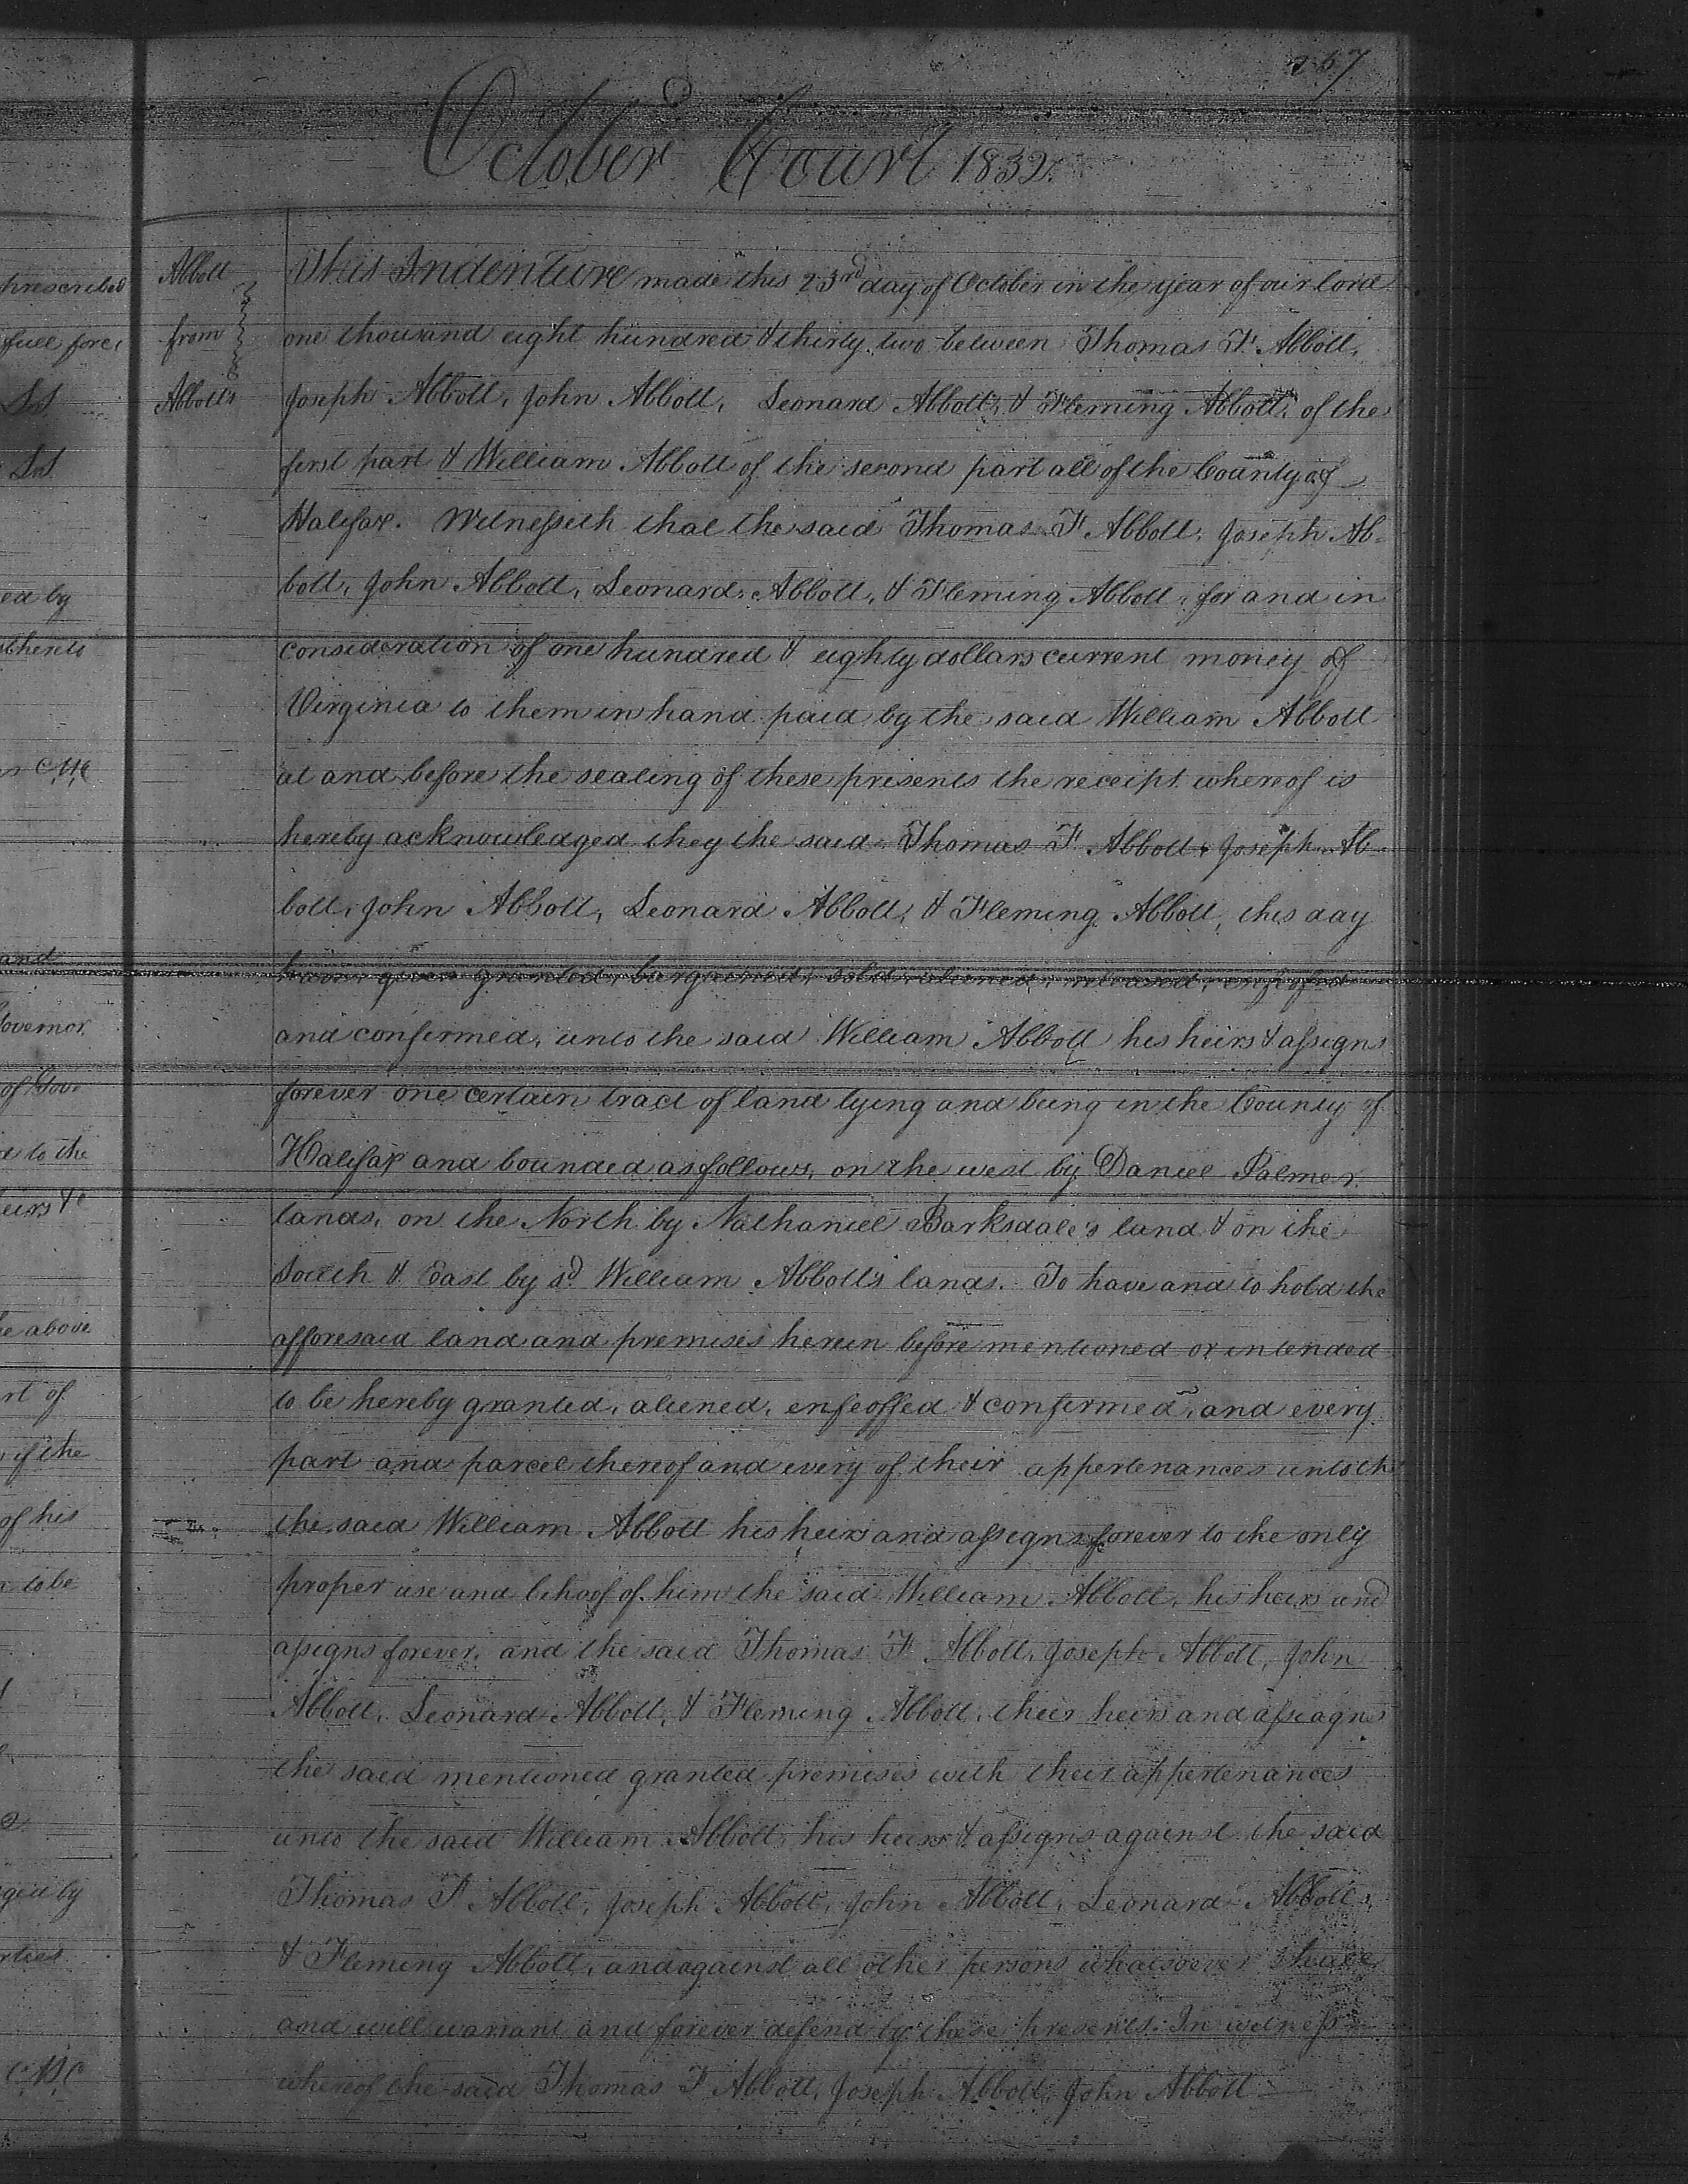 267
October Court 1832.
prescribed
full fore
Sd
Sd
ed by
ar CMC
and
Governor
of Gov
d to the
eirs &c
he above
rt of
if the
of his
to be
rties
Abbott
from
Abbotts
This Indenture made this 23rd day of October in the year of our lord
one thousand eight hundred & thirty two between Thomas F. Abbott,
Joseph Abbott, John Abbott, Leonard Abbott, & Fleming Abbott, of the
first part & William Abbott of the second part all of the County of
Halifax. Witnesseth that the said Thomas F Abbott, Joseph Ab-
bott, John Abbott, Leonard Abbott, & Fleming Abbott, for and in
consideration of one hundred & eighty dollars current money of
Virginia to them in hand paid by the said William Abbott
at and before the sealing of these presents the receipt whereof is
hereby acknowledged they the said Thomas F Abbott, Joseph Ab-
bott, John Abbott, Leonard Abbott, & Fleming Abbott, this day
have given granted, bargained, sold, aliened, released,
and confirmed, unto the said William Abbott his heirs & assigns
forever one certain tract of land lying and being in the County of
Halifax and bounded as follows, on the west by Daniel Palmer
lands, on the North by Nathaniel Barksdale's land & on the
South & East by sd William Abbott's lands. To have and to hold the
afforesaid land and premises herein before mentioned or intended
to be hereby granted, aliened, enfeoffed & confirmed, and every
part and parcel thereof and every of their appertenances unto th
the said William Abbott his heirs and assigns forever to the only
proper use and behoof of him the said William Abbott, his heirs and
assigns forever, and the said Thomas F Abbott, Joseph Abbott, John
Abbott, Leonard Abbott, & Fleming Abbott, their heirs and assiagns
the said mentioned granted premises with their appertenances
unto the said William Abbott, his heirs & assigns against the said
Thomas F Abbott, Joseph Abbott, John Abbott, Leonard Abbott,
& Fleming Abbott, and against all other persons whatsoever shall
and will warrant and forever defend by these presents. In witness
whereof the said Thomas F Abbott, Joseph Abbott, John Abbott